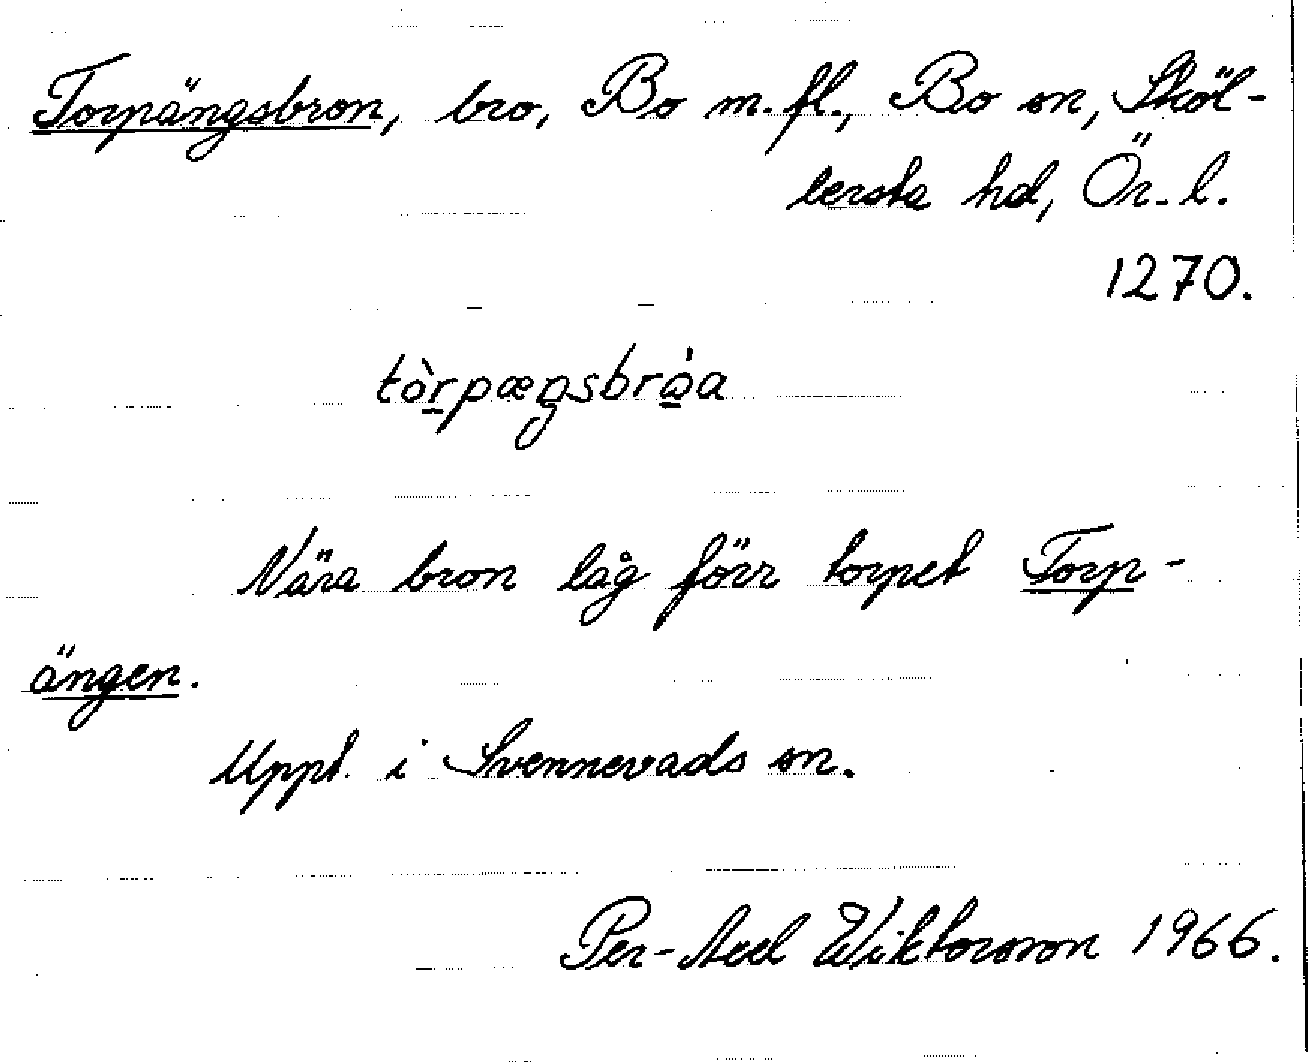 Torpängsbron, bro, Bo m.fl., Bo sn, Sköl-
lersta hd, Ör. l.
1270.
tòrpæŋsbrò̤a
Nära bron låg förr torpet Torp-
ängen.
Uppt. i Svennevads sn.
Per-Axel Wiktorsson 1966.